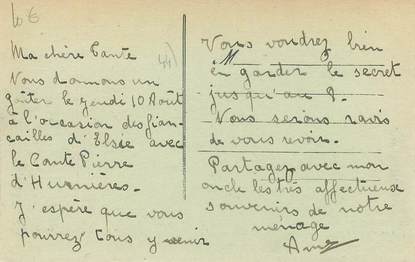 10 €
44)
Ma chère Tante
Nous donnons un
goûter le jeudi 10 Août
à l'occasion des fian-
cailles d'Elsie avec
le Comte Pierre
d'Hurnières.
J'espère que vous
pourrez tous y venir
Vous voudrez bien
en garder le secret
jusqu'au 8.
Nous serions ravis
de vous revoir.
Partagez avec mon
oncle les très affectueux
souvenirs de notre
ménage